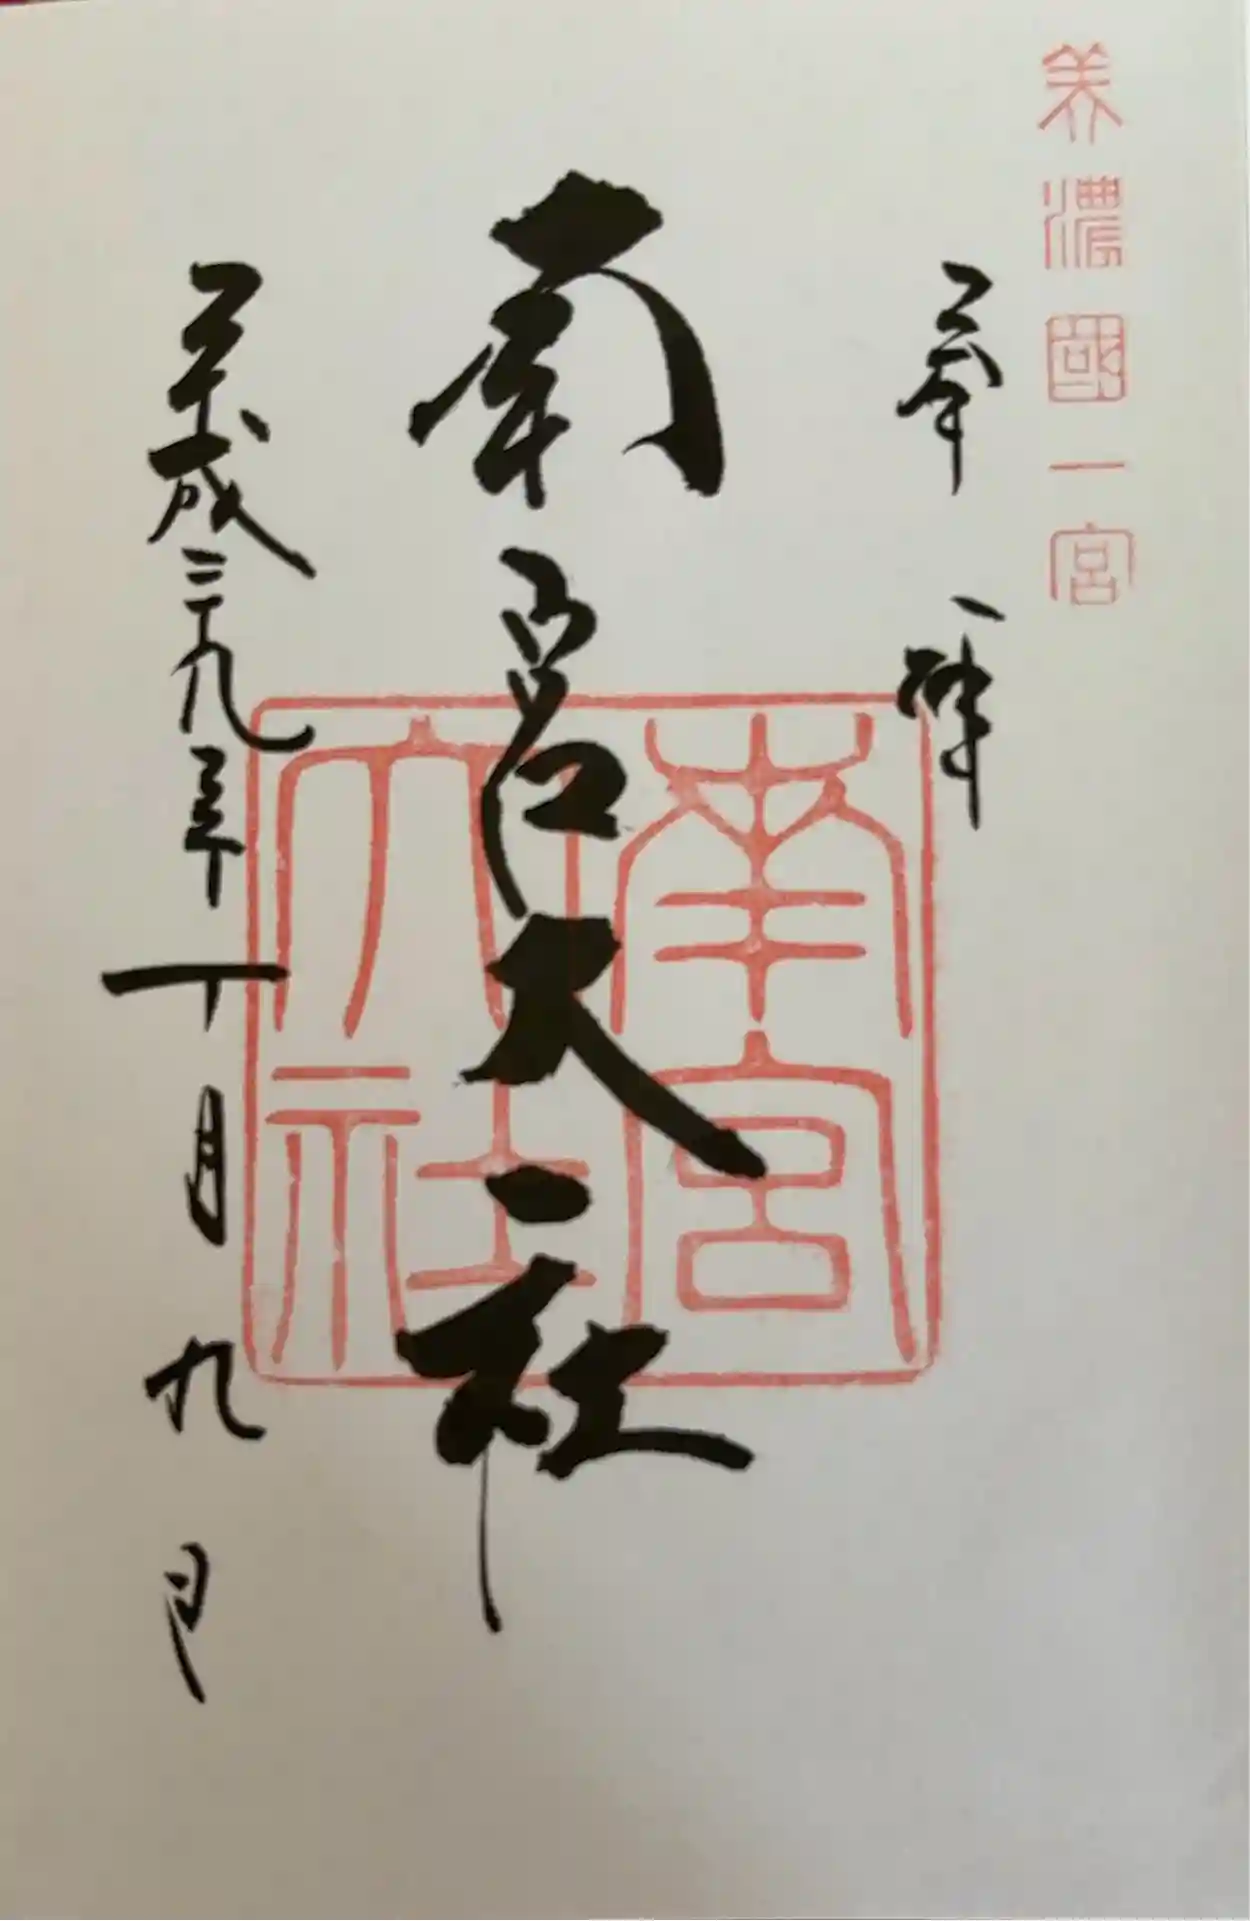 美濃國一宮
奉拝
南宮大社
南宮
大社
平成二十九年十月九日